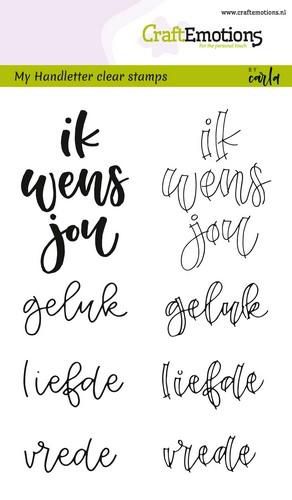 www.craftemotions.nl
CraftEmotions
For the personal touch
My Handletter clear stamps
BY carla
ik ik
wens wens
jou jou
geluk geluk
liefde liefde
vrede vrede